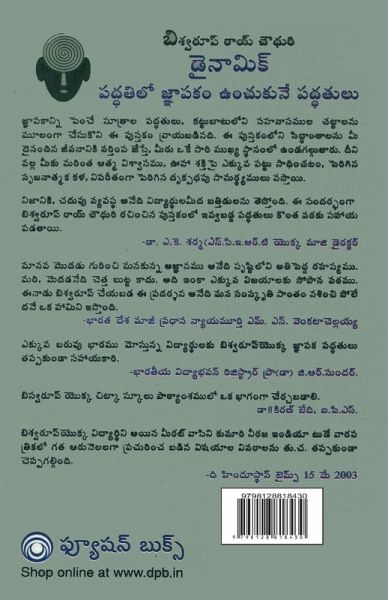 బిశ్వరూప్ రాయ్ చౌధురి
డైనామిక్
పద్ధతిలో జ్ఞాపకం ఉంచుకునే పద్ధతులు
జ్ఞాపకాన్ని పెంచే సూత్రాల పద్ధతులు, కట్టుబాటులోని సహవాసముల చట్టాలను
మూలంగా చేసుకొని ఈ పుస్తకం వ్రాయబడినది. ఈ పుస్తకంలోని సిద్ధాంతాలను మీ
దైనందిన జీవనానికి వర్తింప జేస్తే, మీరు ఒకే సారి ముఖ్య స్థానంలో ఉండగల్గుతారు. దీని
వల్ల మీకు మరింత ఆత్మ విశ్వాసము, ఊహా శక్తిపై ఎక్కువ పట్టు సాధించటం, పెరిగిన
సృజనాత్మక కళ, విపరీతంగా పెరిగిన దృక్పధపు సామర్థ్యములు వస్తాయి.
నిజానికి, చదువు వ్యవస్థ అనేది విద్యార్థులమీద బత్తిడులను తెస్తోంది. ఈ సందర్భంగా
బిశ్వరూప్ రాయ్ చౌధురి రచించిన పుస్తకంలో ఇవ్వబడ్డ పద్ధతులు కొంత వరకు సహాయ
పడతాయి.
-డా. ఎ.కె. శర్మ(ఎన్.సి.ఇ.ఆర్.టి యొక్క మాజి డైరక్టర్
మానవ మొదడు గురించి మనకున్న అజ్ఞానము అనేది సృష్టిలోని అతిపెద్ద రహస్యము.
మరి, మెదడనేది చెత్త బుట్ట కాదు. అది ఇంకా ఎక్కువ విజయాలకు సోపాన వరకము.
ఈనాడు బిశ్వరూప్ చేయబడ ఈ ప్రదర్శన అనేది మన సంస్కృతి సొంతం నశించి పోలే
దనే ఒక హామిని ఇస్తోంది.
-భారత దేశ మాజీ ప్రధాన న్యాయమూర్తి ఎమ్. ఎన్. వెంకటాచెల్లయ్య
ఎక్కువ బరువు భారము మోస్తున్న విద్యార్థులకు బిశ్వరూప్‌యొక్క జ్ఞాపక పద్ధతులు
తప్పకుండా సహాయకారి.
-భారతీయ విద్యాభవన్ రిజిస్ట్రార్ ప్రొ(డా) జి.ఆర్.సుందర్.
బిస్వరూప్ యొక్క చిట్కా స్కూలు పాఠ్యాంశములో ఒక భాగంగా చేర్చబడాలి.
డా॥కిరణ్ బేది, ఐ.పి.ఎస్.
బిశ్వరూప్‌యొక్క విద్యార్థిని అయిన మీరట్ వాసిని కుమారి నీరజ ఇండియా టుడే వారప
త్రికలో గత ఆరునెలలగా ప్రచురించ బడిన విషయాల వివరాలను తు.చ. తప్పకుండా
చెప్పగల్గింది.
-ది హిందూస్థాన్ టైమ్స్ 15 మే 2003
9798128818430
9 798128 818430
ఫ్యూషన్ బుక్స్
Shop online at www.dpb.in